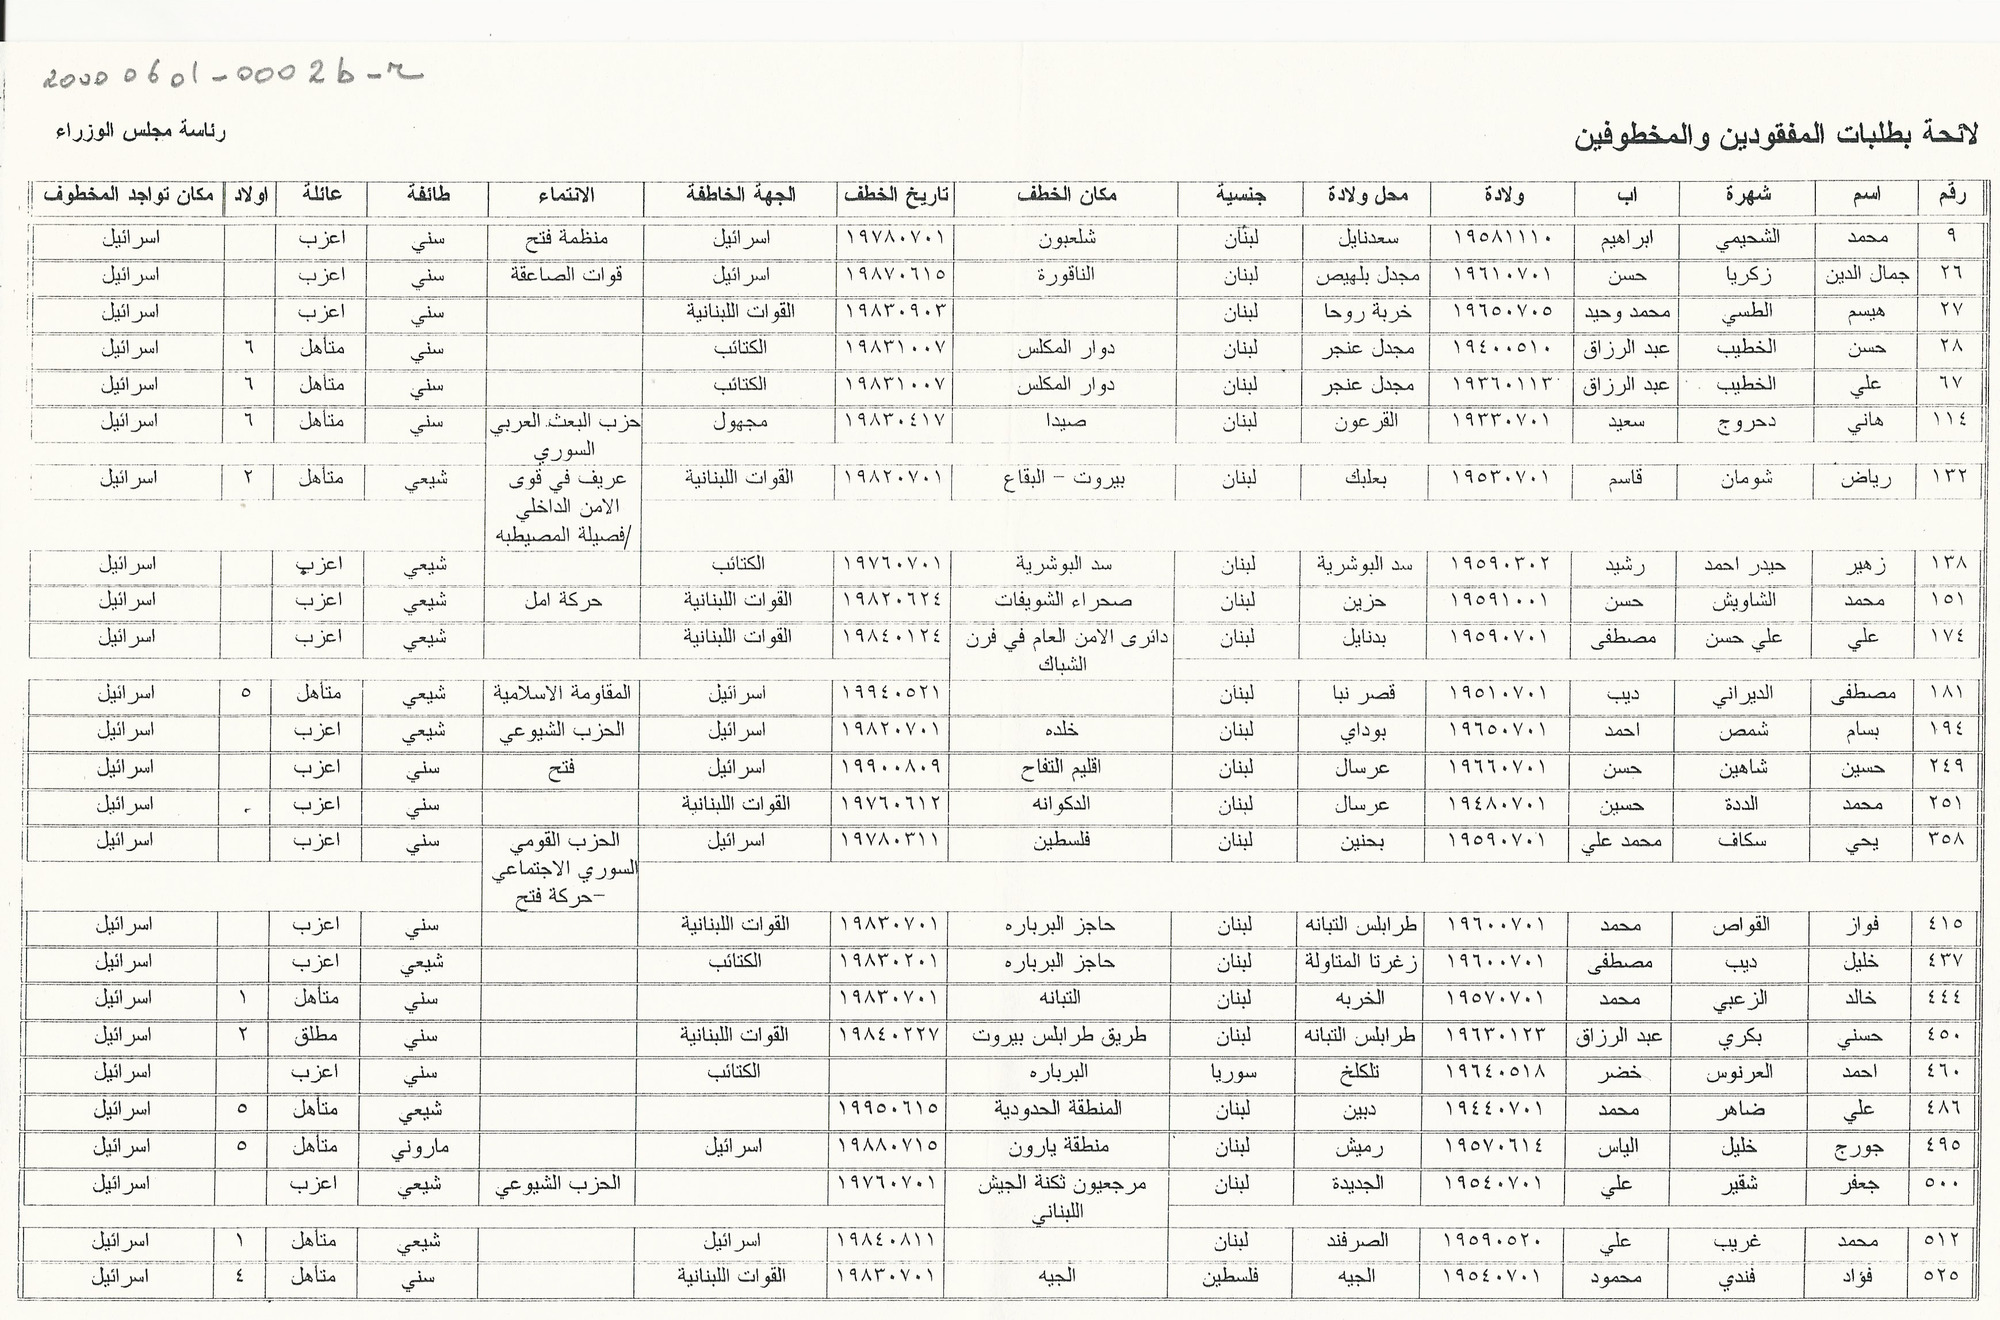 20000601-0002b-r
لائحة بطلبات المفقودين والمخطوفين رئاسة مجلس الوزراء
رقم اسم شهرة اب ولادة محل ولادة جنسية مكان الخطف تاريخ الخطف الجهة الخاطفة الانتماء طائفة عائلة اولاد مكان تواجد المخطوف
٩ محمد الشحيمي ابراهيم ١٩٥٨١١١٠ سعدنايل لبنان شلعبون ١٩٧٨٠٧٠١ اسرائيل منظمة فتح سني اعزب اسرائيل
٢٦ جمال الدين زكريا حسن ١٩٦١٠٧٠١ مجدل بلهيص لبنان الناقورة ١٩٨٧٠٦١٥ اسرائيل قوات الصاعقة سني اعزب اسرائيل
٢٧ هيسم الطسي محمد وحيد ١٩٦٥٠٧٠٥ خربة روحا لبنان ١٩٨٣٠٩٠٣ القوات اللبنانية سني اعزب اسرائيل
٢٨ حسن الخطيب عبد الرزاق ١٩٤٠٠٥١٠ مجدل عنجر لبنان دوار المكلس ١٩٨٣١٠٠٧ الكتائب سني متأهل ٦ اسرائيل
٦٧ علي الخطيب عبد الرزاق ١٩٣٦٠١١٣ مجدل عنجر لبنان دوار المكلس ١٩٨٣١٠٠٧ الكتائب سني متأهل ٦ اسرائيل
١١٤ هاني دحروج سعيد ١٩٣٣٠٧٠١ القرعون لبنان صيدا ١٩٨٣٠٤١٧ مجهول حزب البعث العربي سني متأهل ٦ اسرائيل
السوري
١٣٢ رياض شومان قاسم ١٩٥٣٠٧٠١ بعلبك لبنان بيروت - البقاع ١٩٨٢٠٧٠١ القوات اللبنانية عريف في قوى شيعي متأهل ٢ اسرائيل
الامن الداخلي
/فصيلة المصيطبه
١٣٨ زهير حيدر احمد رشيد ١٩٥٩٠٣٠٢ سد البوشرية لبنان سد البوشرية ١٩٧٦٠٧٠١ الكتائب شيعي اعزب اسرائيل
١٥١ محمد الشاويش حسن ١٩٥٩١٠٠١ حزين لبنان صحراء الشويفات ١٩٨٢٠٦٢٤ القوات اللبنانية حركة امل شيعي اعزب اسرائيل
١٧٤ علي علي حسن مصطفى ١٩٥٩٠٧٠١ بدنايل لبنان دائرى الامن العام في فرن ١٩٨٤٠١٢٤ القوات اللبنانية شيعي اعزب اسرائيل
الشباك
١٨١ مصطفى الديراني ديب ١٩٥١٠٧٠١ قصر نبا لبنان ١٩٩٤٠٥٢١ اسرائيل المقاومة الاسلامية شيعي متأهل ٥ اسرائيل
١٩٤ بسام شمص احمد ١٩٦٥٠٧٠١ بوداي لبنان خلده ١٩٨٢٠٧٠١ اسرائيل الحزب الشيوعي شيعي اعزب اسرائيل
٢٤٩ حسين شاهين حسن ١٩٦٦٠٧٠١ عرسال لبنان اقليم التفاح ١٩٩٠٠٨٠٩ اسرائيل فتح سني اعزب اسرائيل
٢٥١ محمد الددة حسين ١٩٤٨٠٧٠١ عرسال لبنان الدكوانه ١٩٧٦٠٦١٢ القوات اللبنانية سني اعزب اسرائيل
٣٥٨ يحي سكاف محمد علي ١٩٥٩٠٧٠١ بحنين لبنان فلسطين ١٩٧٨٠٣١١ اسرائيل الحزب القومي سني اعزب اسرائيل
السوري الاجتماعي
-حركة فتح
٤١٥ فواز القواص محمد ١٩٦٠٠٧٠١ طرابلس التبانه لبنان حاجز البرباره ١٩٨٣٠٧٠١ القوات اللبنانية سني اعزب اسرائيل
٤٣٧ خليل ديب مصطفى ١٩٦٠٠٧٠١ زغرتا المتاولة لبنان حاجز البرباره ١٩٨٣٠٢٠١ الكتائب شيعي اعزب اسرائيل
٤٤٤ خالد الزعبي محمد ١٩٥٧٠٧٠١ الخربه لبنان التبانه ١٩٨٣٠٧٠١ سني متأهل ١ اسرائيل
٤٥٠ حسني بكري عبد الرزاق ١٩٦٣٠١٢٣ طرابلس التبانه لبنان طريق طرابلس بيروت ١٩٨٤٠٢٢٧ القوات اللبنانية سني مطلق ٢ اسرائيل
٤٦٠ احمد العرنوس خضر ١٩٦٤٠٥١٨ تلكلخ سوريا البرباره الكتائب سني اعزب اسرائيل
٤٨٦ علي ضاهر محمد ١٩٤٤٠٧٠١ دبين لبنان المنطقة الحدودية ١٩٩٥٠٦١٥ شيعي متأهل ٥ اسرائيل
٤٩٥ جورج خليل الياس ١٩٥٧٠٦١٤ رميش لبنان منطقة يارون ١٩٨٨٠٧١٥ اسرائيل ماروني متأهل ٥ اسرائيل
٥٠٠ جعفر شقير علي ١٩٥٤٠٧٠١ الجديدة لبنان مرجعيون ثكنة الجيش ١٩٧٦٠٧٠١ الحزب الشيوعي شيعي اعزب اسرائيل
اللبناني
٥١٢ محمد غريب علي ١٩٥٩٠٥٢٠ الصرفند لبنان ١٩٨٤٠٨١١ اسرائيل شيعي متأهل ١ اسرائيل
٥٢٥ فؤاد فندي محمود ١٩٥٤٠٧٠١ الجيه فلسطين الجيه ١٩٨٣٠٧٠١ القوات اللبنانية سني متأهل ٤ اسرائيل